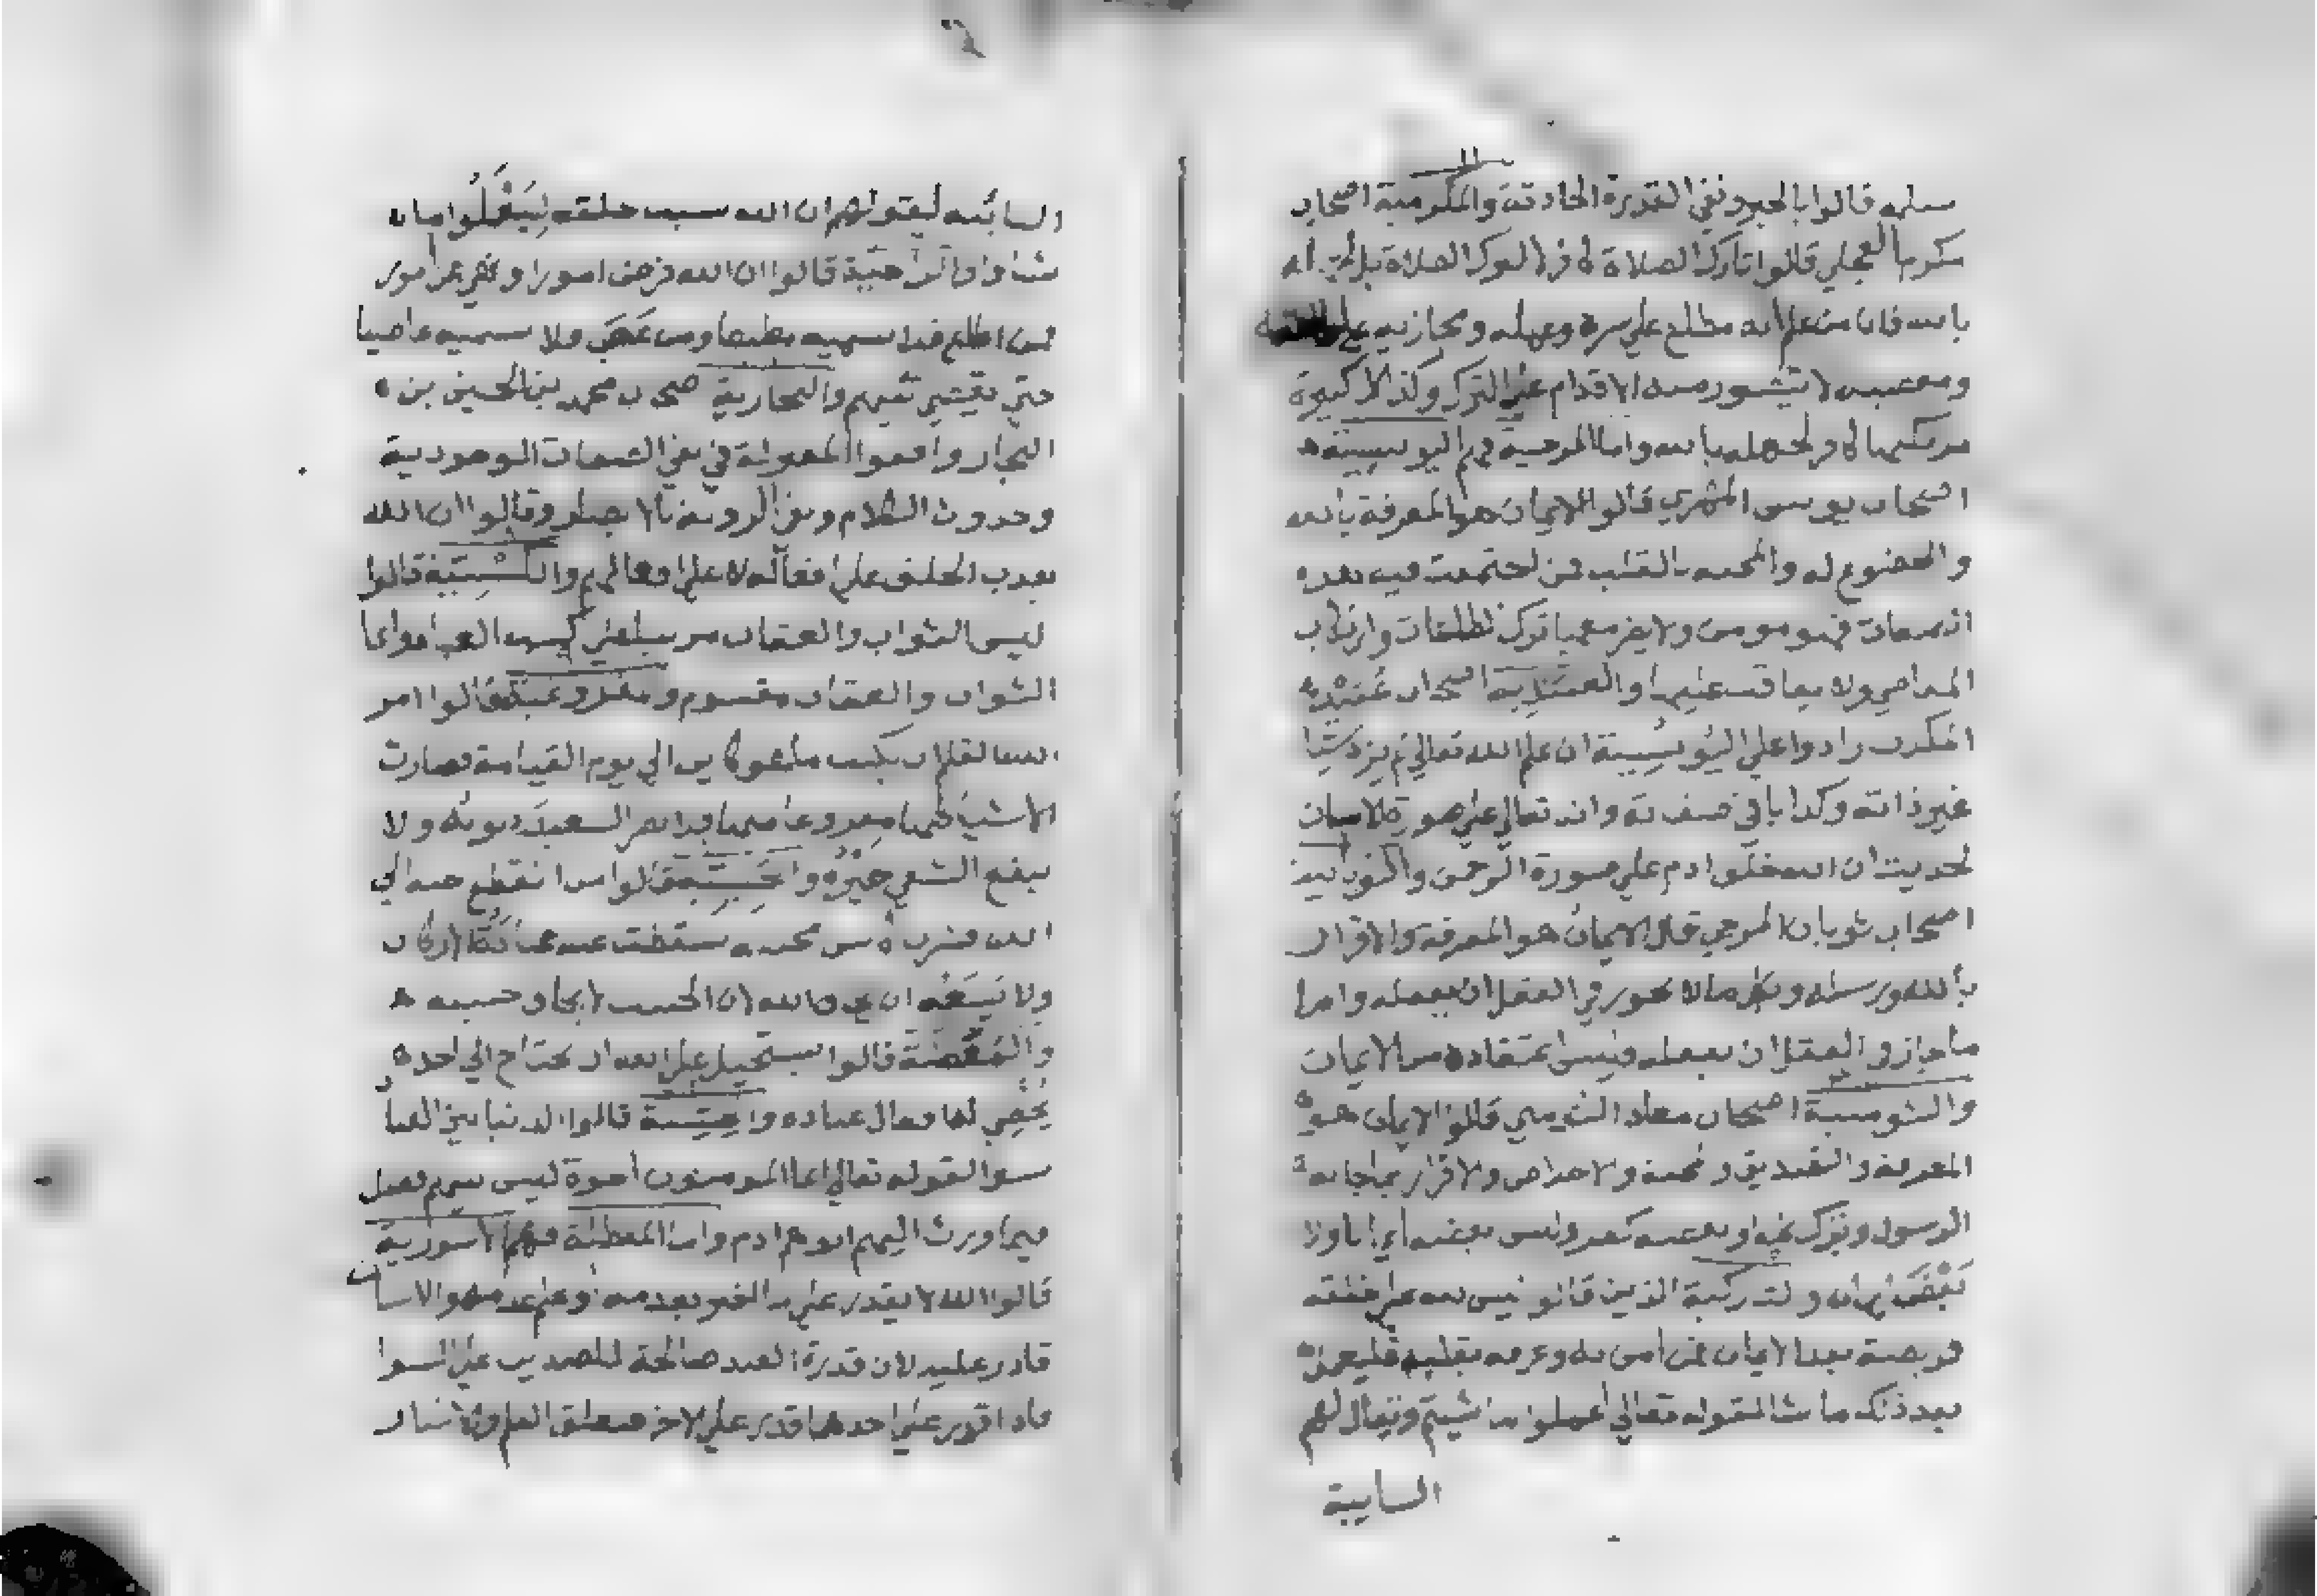 قالوا بالجبر ونفي القدرة الحادثة والمكرمية اصحاب
مكرم العجلي قالوا تارك الصلاة كافر لا لترك الصلاة بل
بالله فان من علم انه مطلع علي سره وعمله ومجازيه علي
ومعصيته لا يتصور منه الاقدام علي الترك وكذا كل كبيرة
مرتكبها كافر لجهله بالله واما المرجية فهم اليونسية
اصحاب يونس النميري قالوا الايمان هو المعرفة بالله
والخضوع له والمحبه بالقلب فمن اجتمعت فيه هذه
الصفات فهو مومن ولا يضر معها ترك الطاعات وارتكاب
المعاصي ولا يعاقب عليها والعبيدية اصحاب عبيد
المكذب زادوا علي اليونسية ان علم الله تعالي لم يزل شيا
غير ذاته وكذا باقي صفاته وانه تعالي علي صورة الانسان
لحديث ان الله خلق ادم علي صورة الرحمن والثوبانية
اصحاب ثوبان المرجي قال الايمان هو المعرفة والاقرار
بالله ورسله وبكل ما لا يجوز في العقل ان يفعله واما
ما جاز في العقل ان يفعله فليس اعتقاده من الايمان
والثومنية اصحاب معاذ الثومني قالوا الايمان هو
المعرفة والتصديق والمحبة والاخلاص والاقرار بما جا به
الرسول وترك كله او بعضه كفر وليس بعضه ايمانا ولا
بعض ايمان والتاركية الذين قالوا ليس لله علي خلقه
فريضة بعد الايمان فمن امن به وعرفه بقلبه فليعمل
بعد ذلك ما شا لقوله تعالي اعملوا ما شيتم ويقال لهم
السايبية
السائبه لقولهم ان الله سيب خلقه ليفعلوا ما
شاوا والراجية قالوا ان الله فرض امورا ونهي عن امور
فمن اطاع فلا نسميه مطيعا ومن عصي فلا نسميه عاصيا
حتي والنجارية اصحاب محمد بن الحسين بن
النجار وافقوا المعتزلة في نفي الصفات الوجودية
وحدوث الكلام ونفي الروية بالابصار وقالوا ان الله
يعذب الخلق علي افعاله لا علي افعالهم والكسبية قالوا
ليس الثواب والعقاب من كسب العبد وانما
الثواب والعقاب مقسوم ومفروغ قالوا امر
الله القلم ان يكتب ما هو كاين الي يوم القيامة فصارت
الاشيا كلها مفروغا منها السعيد ذنوبه ولا
ينفع الشقي خيره قالوا من انقطع حبه الي
الله فشرب كاس محبته سقطت عنه عبادة الاركان
ولا يسعه ان يخاف الله لان الحبيب لا يخاف حبيبه
قالوا يستحيل علي الله ان يحتاج الي احد
يحصي له افعال عباده قالوا الدنيا بين العباد
سوا لقوله تعالي انما المومنون اخوة ليس بينهم فضل
فيما ورث اليهم ابوهم ادم واما المعطلة فهم الاسوارية
قالوا الله لا يقدر علي ما اخبر بعدمه او علم عدمه والانسان
قادر عليه لان قدرة العبد صالحة للضدين علي السوا
فاذا قدر علي احدهما قدر علي الاخر فتعلق العلم والاخبار